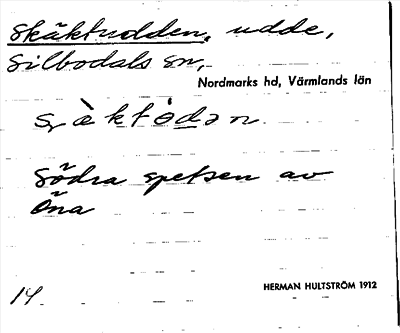 Skäktudden, udde,
Silbodals sn,
Nordmarks hd, Värmlands län
Södra spetsen av
Öna
14.
HERMAN HULTSTRÖM 1912